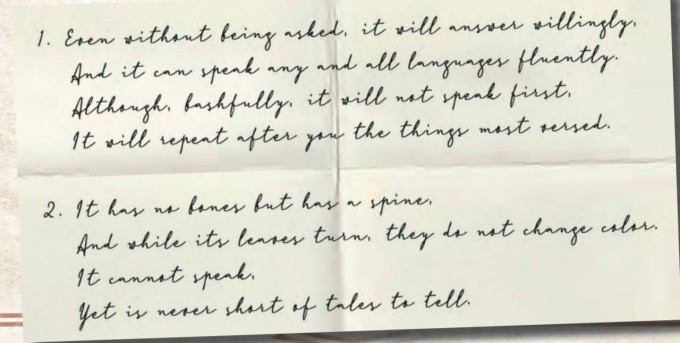 1. Even without being asked, it will answer willingly,
And it can speak any and all languages fluently.
Although, bashfully, it will not speak first,
It will repeat after you the things most versed.
2. It has no bones but has a spine,
And while its leaves turn, they do not change color.
It cannot speak,
Yet is never short of tales to tell.